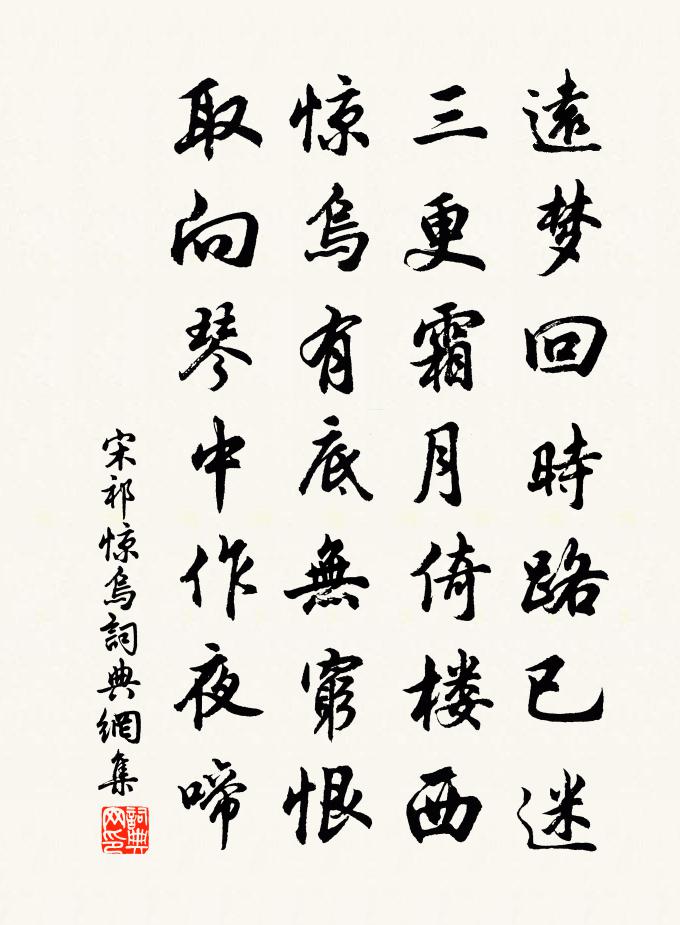 遠梦回時路已迷
三更霜月倚楼西
惊烏有底無窮恨
取向琴中作夜啼
宋祁惊烏詞典網集
詞典網印